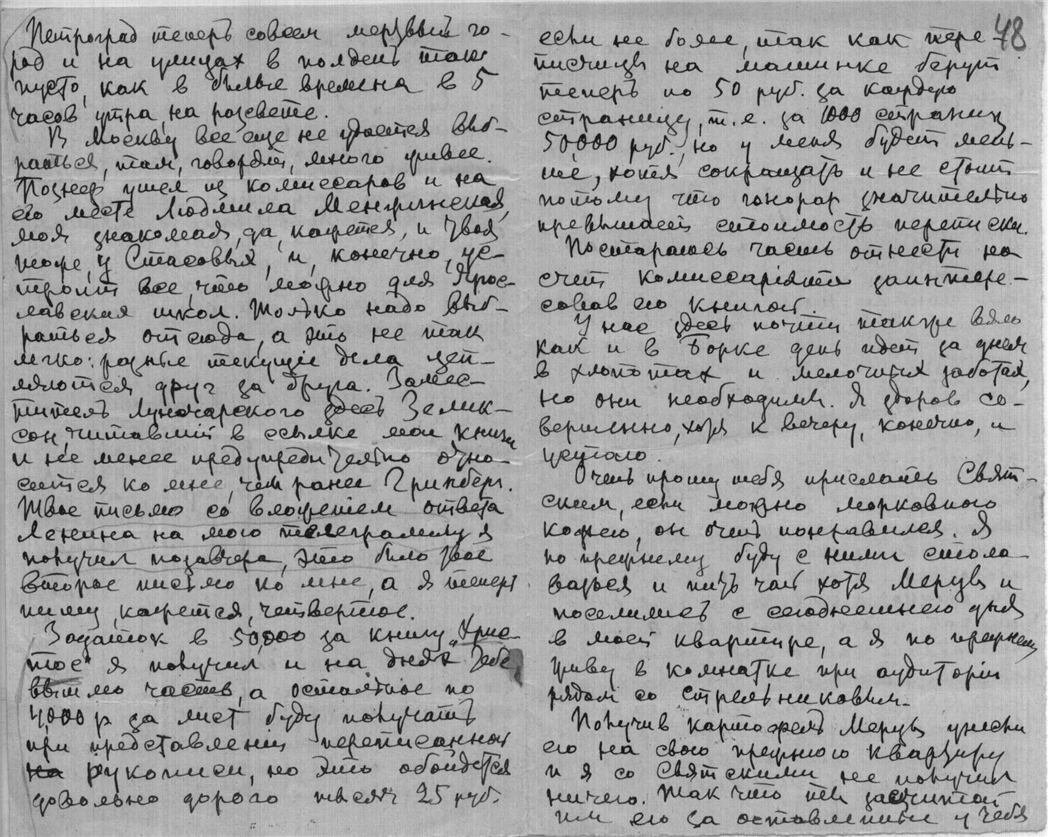 Петроград теперь совсем мертвый го-
род и на улицах в полдень так
пусто, как в былые времена в 5
часов утра на рассвете.
В Москву все еще не удается выб-
раться, там, говорят, много живее.
Познер ушел из комиссаров и на
его месте Людмила Менжинская,
моя знакомая, да, кажется, и твоя
тоже, у Стасовых, и, конечно, ус-
троит все, что можно для Ярос-
лавских школ. Только надо выб-
раться отсюда, а это не так
легко: разные текущие дела цеп-
ляются друг за друга. Замес-
титель Луначарского здесь Зелик-
сон, читавший в ссылке мои книги
и не менее предупредительно отно-
сится ко мне, чем ранее Гринберг.
Твое письмо со вложением ответа
Ленина на мою телеграмму я
получил позавчера, это было твое
второе письмо ко мне, а я теперь
пишу, кажется, четвертое.
Задаток в 50,000 за книгу „Хрис-
тос" я получил и на днях тебе
вышлю часть, а остальное по
4,000 р за лист буду получать
при представлении переписанной
рукописи, но это обойдется
довольно дорого тысяч 25 руб.
48
если не более, так как пере-
писчицы на машинке берут
теперь по 50 руб. за каждую
страницу, т.е. за 1000 страниц
50,000 руб., но у меня будет мень-
ше, хотя сокращать и не стоит
потому что гонорар значительно
превышает стоимость переписки.
Постараюсь часть отнести на
счет комиссариата заинтере-
совав его книгой.
У нас здесь почти также вяло
как и в Борке день идет за днем
в хлопотах и мелочных заботах,
но они необходимы. Я здоров со-
вершенно, хотя к вечеру, конечно, и
устаю.
Очень прошу тебя прислать Свят-
ским, если можно морковного
кофею, он очень понравился. Я
по прежнему буду с ними столо-
ваться и пить чай хотя Мерцы и
поселились с сегодняшнего дня
в моей квартире, а я по прежнему
живу в комнатке при аудитории
рядом со Стрельниковым.
Получив картофель Мерцы унесли
его на свою прежнюю квартиру
и я со Святскими не получил
ничего. Так что ты засчитай
им его за оставленный у тебя